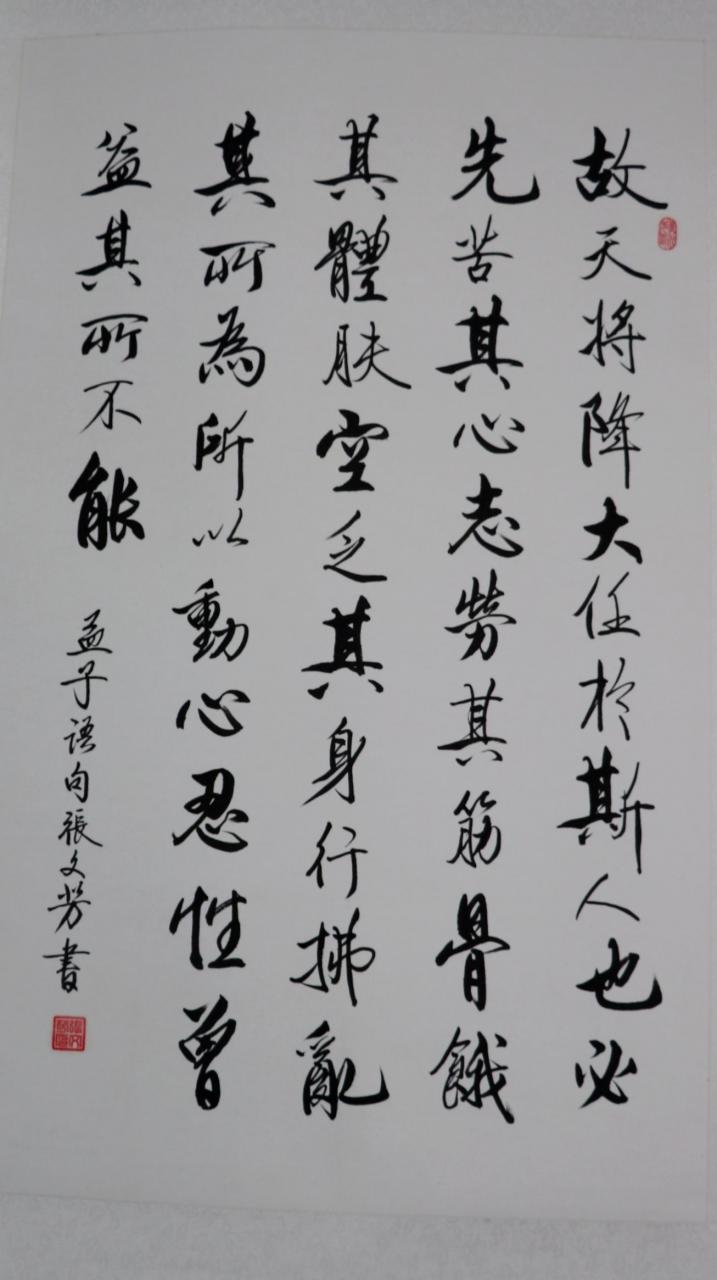 故天将降大任於斯人也必
先苦其心志勞其筋骨餓
其體膚空乏其身行拂亂
其所為所以動心忍性曾
益其所不能
孟子語句張文芳書